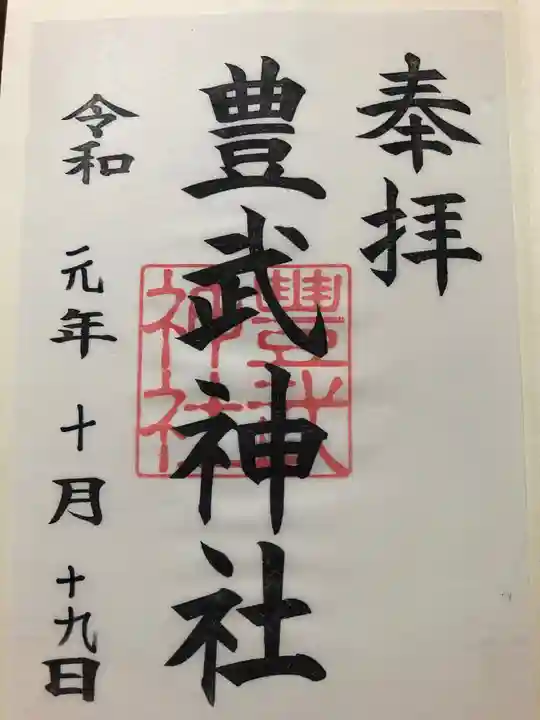 奉拝
豊武神社
豊武
神社
令和 元年 十月 十九日